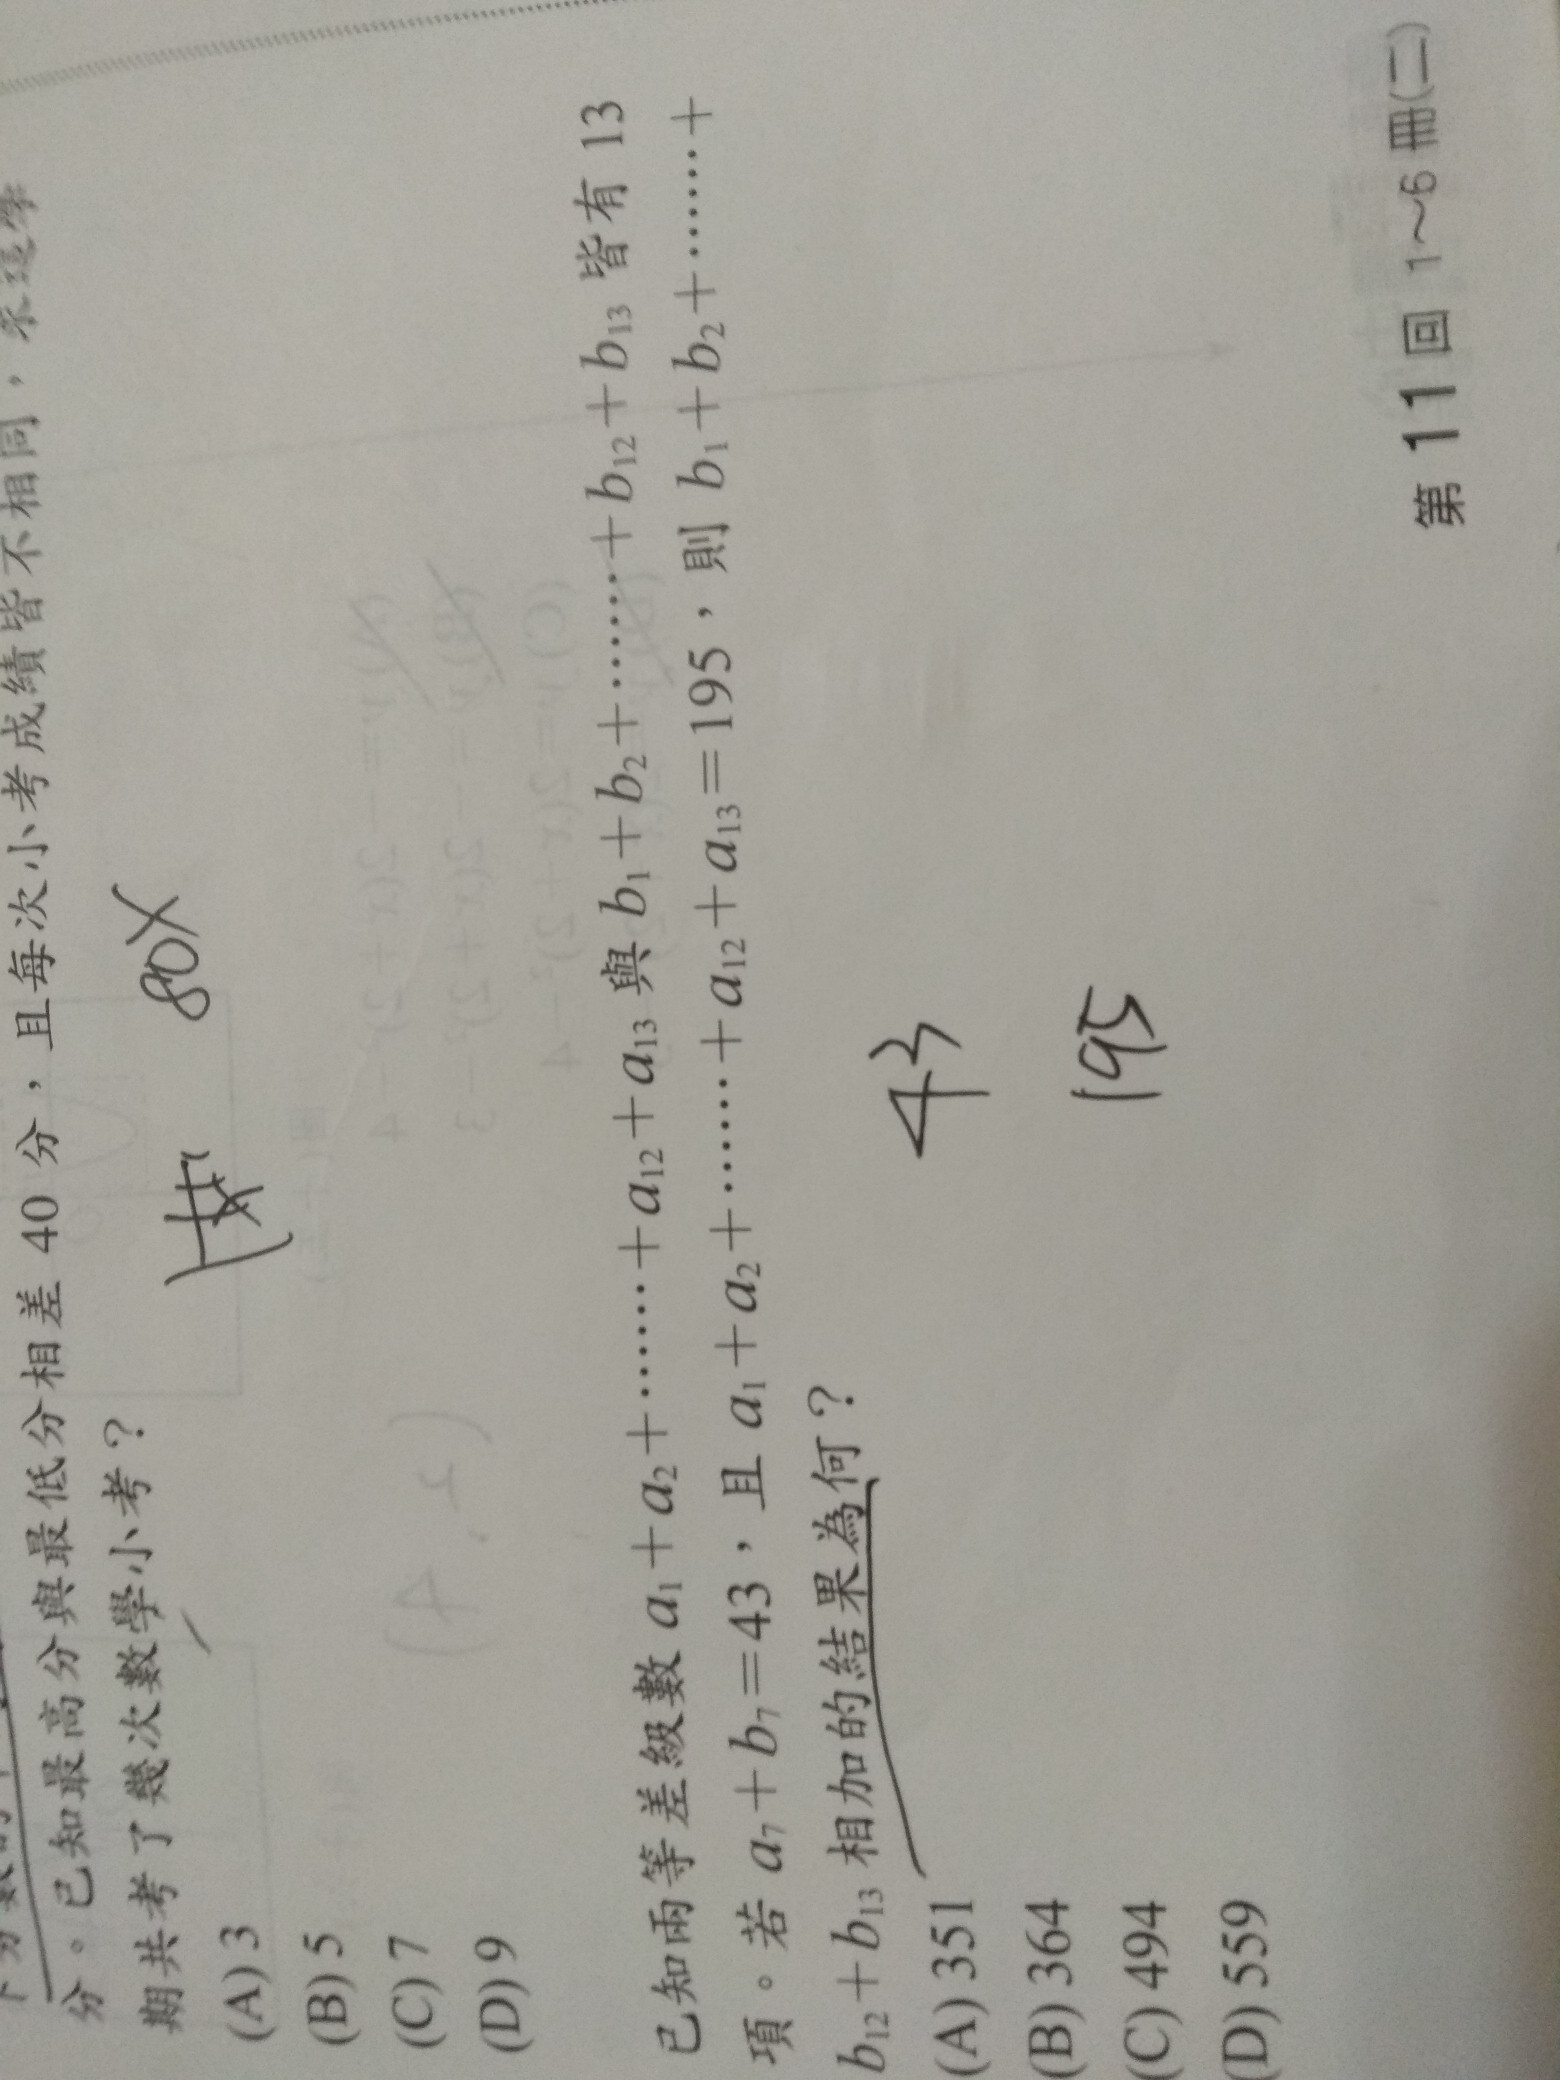 分。已知最高分與最低分相差 40 分，且每次小考成績皆不相同，
期共考了幾次數學小考？
80X
(A) 3
(B) 5
(C) 7
(D) 9
已知兩等差級數 a₁+a₂+……+a₁₂+a₁₃ 與 b₁+b₂+……+b₁₂+b₁₃ 皆有 13
項。若 a₇+b₇=43，且 a₁+a₂+……+a₁₂+a₁₃=195，則 b₁+b₂+……+
b₁₂+b₁₃ 相加的結果為何？
43
(A) 351
195
(B) 364
(C) 494
(D) 559
第 11 回 1～6 冊(二)